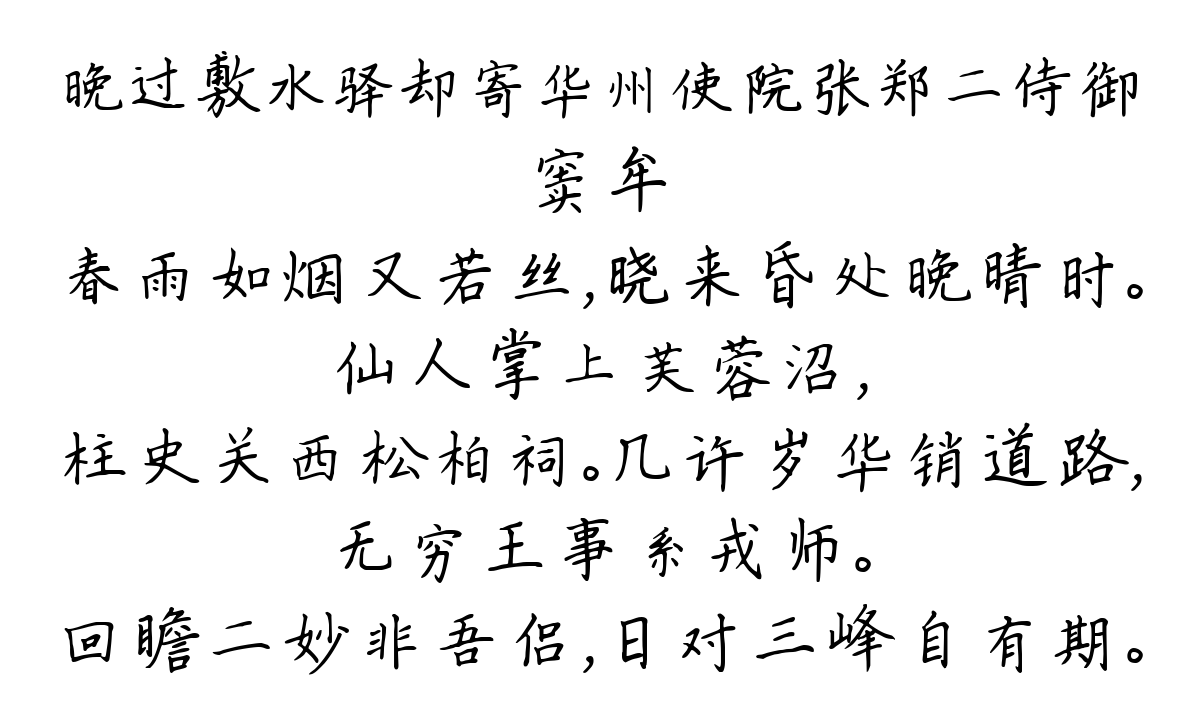 晚过敷水驿却寄华州使院张郑二侍御
窦牟
春雨如烟又若丝,晓来昏处晚晴时。
仙人掌上芙蓉沼,
柱史关西松柏祠。几许岁华销道路,
无穷王事系戎师。
回瞻二妙非吾侣,日对三峰自有期。